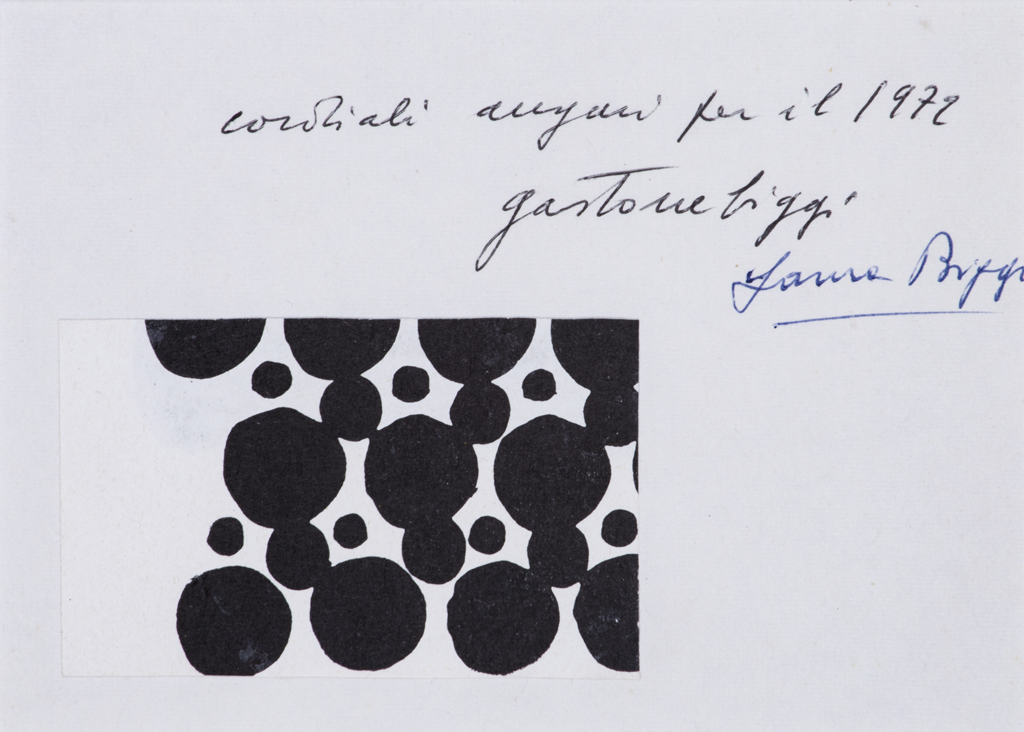 cordiali auguri per il 1972
gastone biggi
Laura Biggi